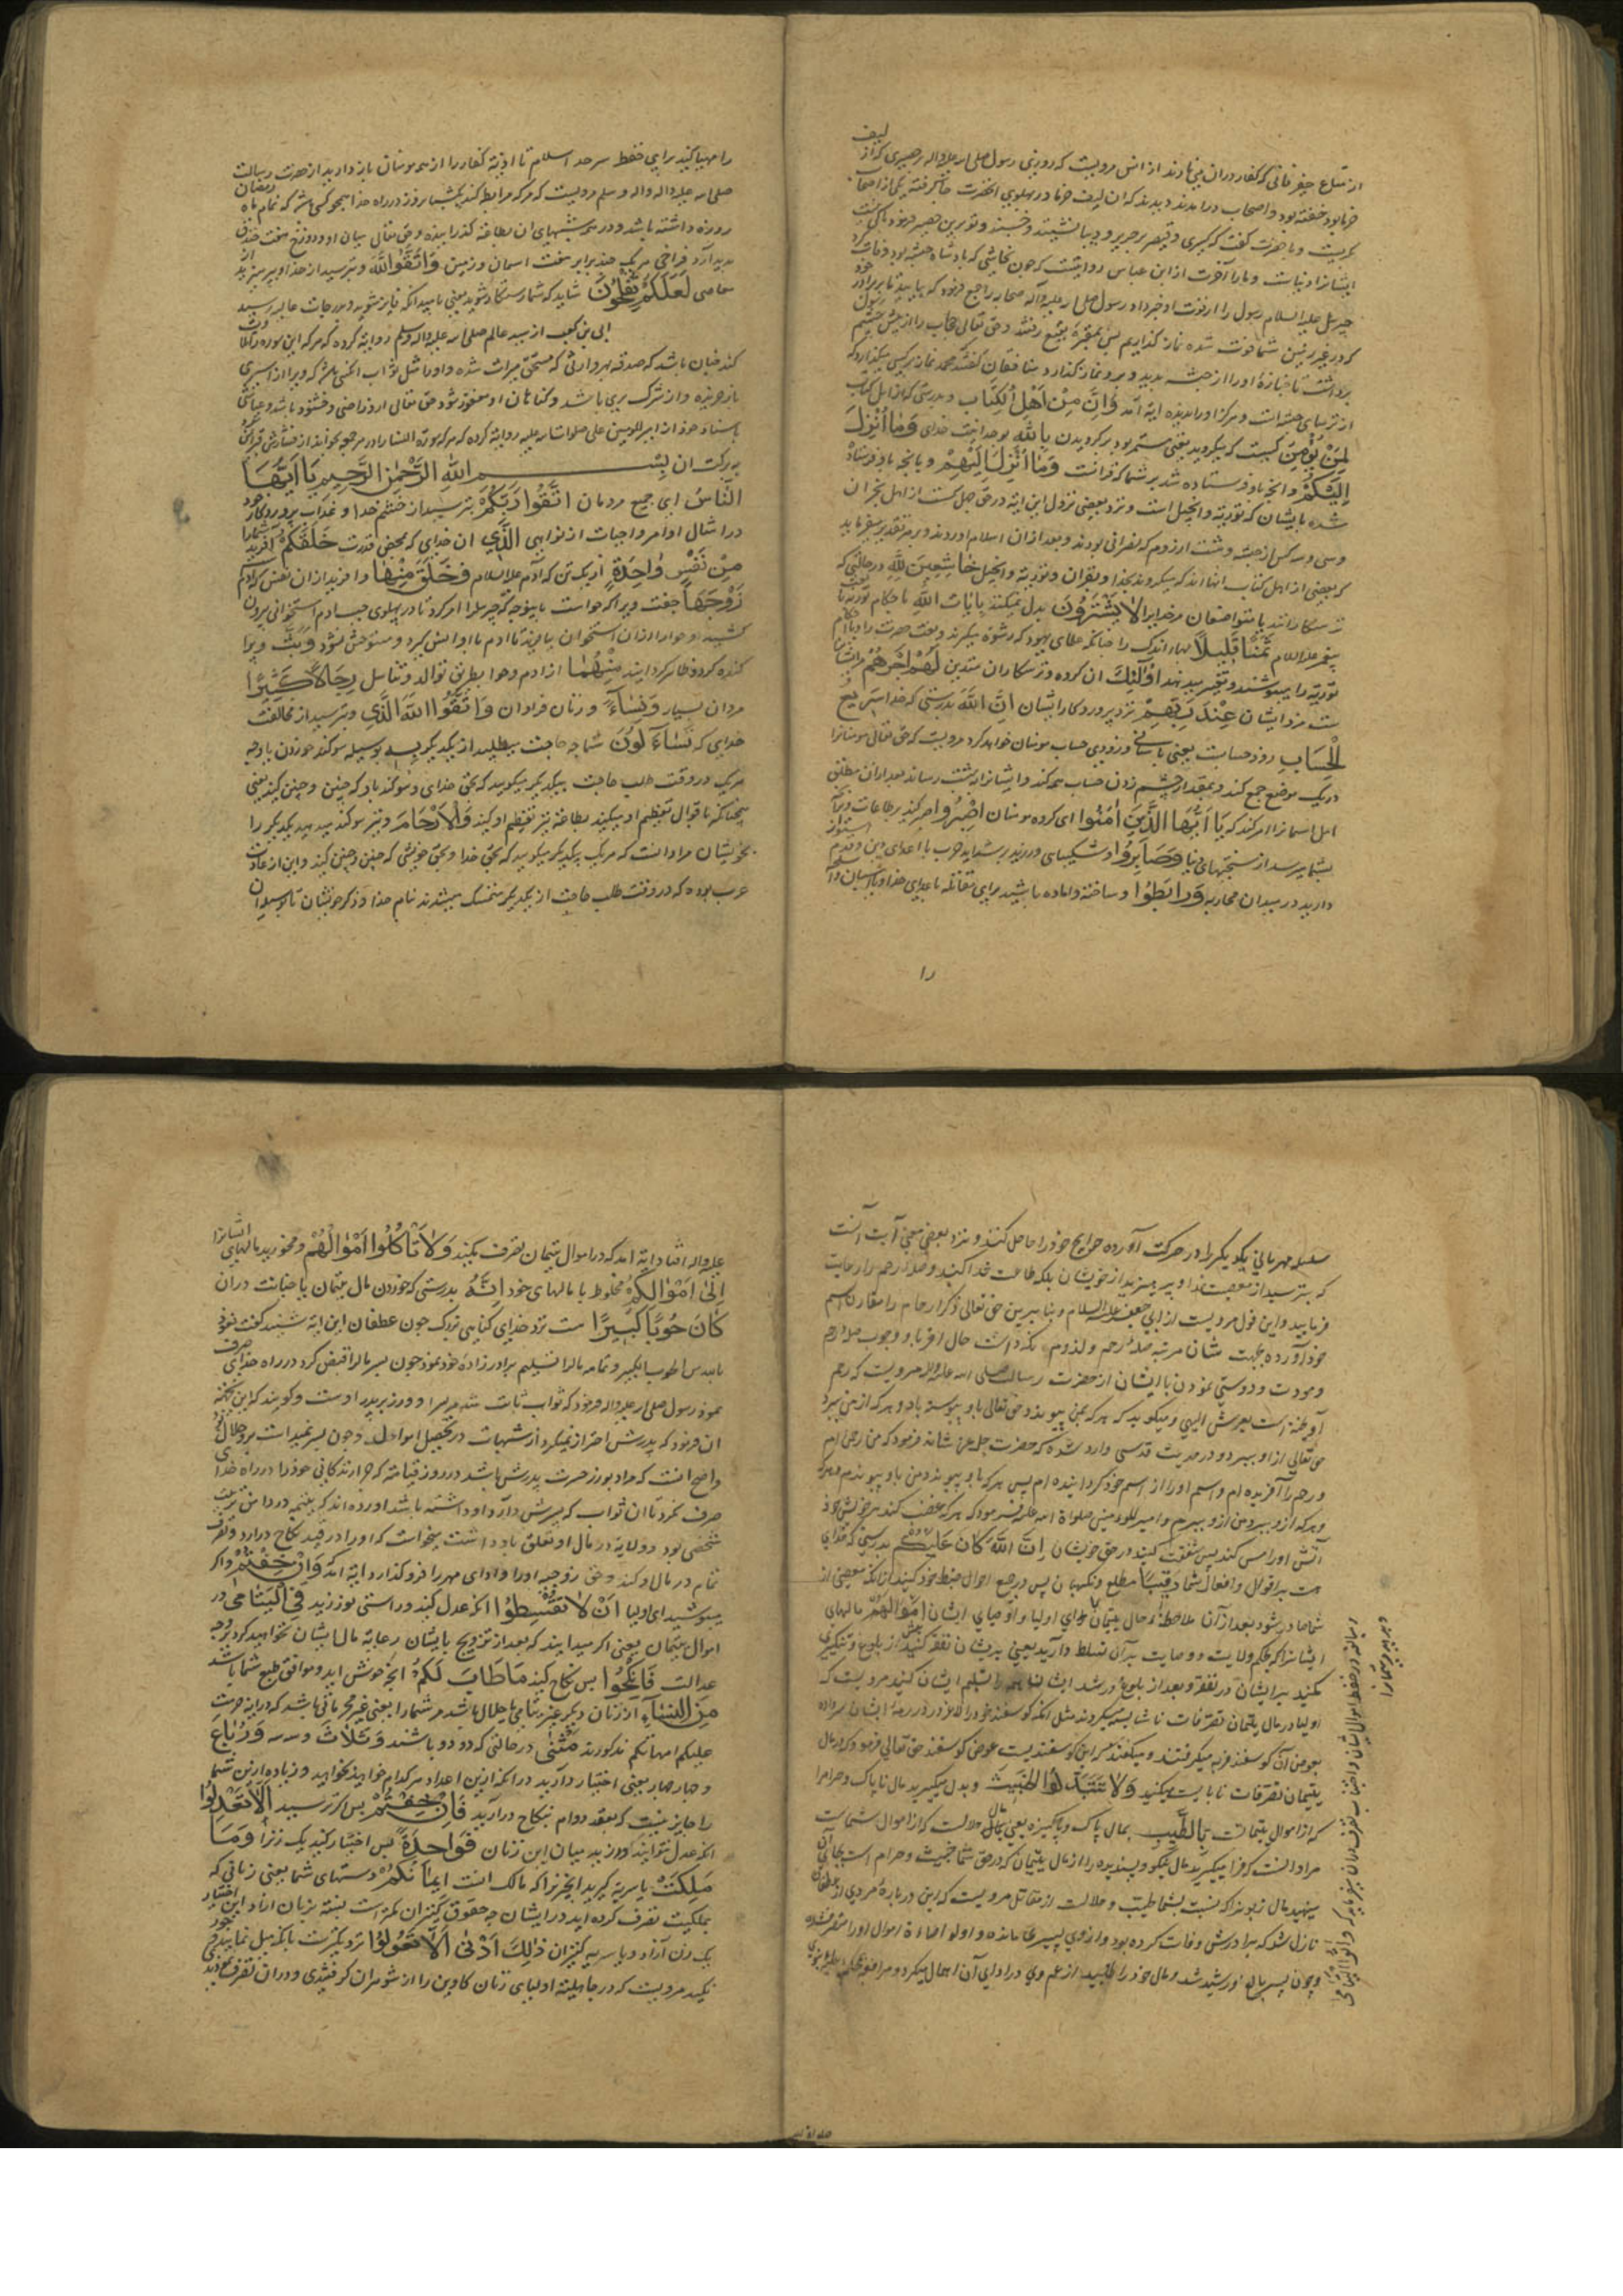 لیف
از متاع حیوة فانی که کفار دران می نازند از انس مرویست که روزی رسول صلی الله علیه واله بر حصیری که از
خرما بود خفته بود و اصحاب درامدند دیدند که ان لیف خرما در پهلوی انحضرت جا گرفته یکی از اصحاب
بگریست و با حضرت گفت که کسری و قیصر بر حریر و دیبا نشینند و خسبند و تو برین حصیر فرمود باکی نیست
ایشانرا دنیاست و مارا آخرت از ابن عباس روایتست که چون نجاشی که پادشاه حبشه بود وفات کرد
جبریل علیه السلام رسول را از فوت او خبر داد رسول صلی الله علیه وآله صحابه را جمع فرمود که بیایید تا بر برادر خود
که در غیر زمین شما فوت شده نماز گذاریم پس بمقبرهٔ بقیع رفتند و حق تعالی حجاب را از پیش چشم رسول
برداشت تا جنازهٔ او را از حبشه بدید و برو نماز گذارد منافقان گفتند محمد نماز بر کسی میگذارد که
از ترسای حبشه است و هرگز او را ندیده ایة آمد وَاِنَّ مِنْ اَهْلِ الْکِتَابِ و بدرستی که از اهل کتاب
لَمَنْ یُؤْمِنُ کسیست که میگرود یعنی مستمر بود بر گرویدن بِاللّٰهِ بوحدانیت خدای وَمٰا اُنْزِلَ
اِلَیْکُمْ وانچه باو فرستاده شد بر شما که قرانست وَمٰا اُنْزِلَ اِلَیْهِمْ و بانچه باو فرستاده
شده بایشان که توریة و انجیل است و نزد بعضی نزول این ایه در حق چهل کس است از اهل نجران
وسی و سه کس از حبشه و هشت از روم که نصرانی بودند و بعد ازان اسلام اوردند و بر هر تقدیر میفرماید
که بعضی از اهل کتاب انانند که میگروند بخدا و بقران و توریة و انجیل خٰاشِعِینَ لِلّٰهِ در حالتی که
ترسکارانند یا متواضعان مرخدایرا لاٰ یَشْتَرُونَ بدل نمیکنند بِاٰیٰاتِ اللّٰهِ باحکام توریة یا نعت
پیغمبر علیه السلام ثَمَنًا قَلِیلاً بهاء اندک را چنانکه علمای یهود که رشوة میگیرند و نعت حضرت را و با احکام
توریة را میپوشند و تغییر میدهند اُولٰئِکَ ان کروه ترسکاران متدین لَهُمْ اَجْرُهُمْ مر ایشان
ست مزد ایشان عِنْدَ رَبِّهِمْ نزد پروردکار ایشان اِنَّ اللّٰهَ بدرستی که خدا سَرِیعُ
الْحِسَابِ زود حسابست یعنی باسانی و زودی حساب مومنان خواهد کرد مرویست که حق تعالی مومنانرا
در یک موضع جمع کند و بمقدار چشم زدن حساب همه کند و ایشانرا ببهشت رساند بعد ازان مطلق
اهل اسلام را امر کند که یٰا اَیُّهَا الَّذِینَ اٰمَنُوا ای کروه مومنان اصْبِرُوا صبر کنید بر طاعات و بر آنچه
بشما میرسد از سختیهای دنیا وَصٰابِرُوا و شکیبایی ورزید بر شداید حرب با اعدای دین و قدم استوار
دارید در میدان محاربه وَرٰابِطُوا و ساخته و اماده باشید برای مقاتله با عدای خدا و
را
را مهیا کنید برای حفظ سرحد اسلام تا اذیة کفار را از سر مومنان باز دارید از حضرت رسالت
صلی الله علیه واله وسلم مرویست که هر که مرابطه کند یکشبانروز در راه خدا همچو کسی باشد که تمام ماه رمضان
روزه داشته باشد و در همه شبهای ان بطاعة گذرانیده و حق تعالی میان او و دوزخ هفت خندق
پدید آرد فراخی هر یک چند برابر هفت اسمان و زمین وَاتَّقُوا اللّٰهَ و بترسید از خدا و بپرهیزید از
معاصی لَعَلَّکُمْ تُفْلِحُونَ شاید که شما رستکار شوید یعنی بامید آنکه فایز شوید و بدرجات عالیه رسید
ابی بن کعب از سید عالم صلی الله علیه واله وسلم روایة کرده که هر که این سوره را تلاوت
کند چنان باشد که صدقه بهر وارثی که مستحق میراث شده و اورا مثل ثواب انکسی باشد که ویرا از اسیری
باز خریده و از شرک بری باشد و کناهان او مغفور شود حق تعالی ازو راضی و خشنود باشد و عیاشی
باسناد خود از امیر المومنین علی صلوات الله علیه روایة کرده که هر که سورة النسا را در هر جمعه بخواند از فشارش قبر ایمن
ببرکت ان بِسْمِ اللّٰهِ الرَّحْمٰنِ الرَّحِیمِ یٰا اَیُّهَا
النّٰاسُ ای جمیع مردمان اتَّقُوا رَبَّکُمْ بترسید از خشم خدا و عذاب پروردکار خود
در امتثال اوامر و اجتناب از نواهی الَّذِی ان خدای که بمحض قدرت خَلَقَکُمْ آفرید شما را
مِنْ نَفْسٍ وٰاحِدَةٍ از یک تن که آدم علیه السلام وَخَلَقَ مِنْهٰا و افرید از ان نفس که آدم
زَوْجَهٰا جفت ویرا که حواست باینوجه که جبریل را امر کرد تا در پهلوی چپ ادم استخوانی بیرون
کشید و حوا را ازان استخوان بیافرید تا ادم با او انس گیرد و مستوحش نشود وَبَثَّ و پرا
کنده کرد و ظاهر کردانید مِنْهُمٰا از ادم و حوا بطریق توالد و تناسل رِجٰالاً کَثِیرًا
مردان بسیار وَنِسٰآءً و زنان فراوان وَاتَّقُوا اللّٰهَ الَّذِی و بترسید از مخالفت
خدایی که تَسٰآءَلُونَ شما چه حاجت میطلبید از یکدیگر بِهِ بوسیله سوکند خوردن باو چه
هر یک در وقت طلب حاجت بیکدیگر میگویید که بحق خدای و سوکند باو که چنین و چنین کنید یعنی
همچنانکه باقوال تعظیم او میکنید بطاعة نیز تعظیم او کنید وَالْاَرْحٰامَ و نیز سوکند میدهید یکدیگر را
بخویشان مراد انست که هر یک بیکدیگر میکویید که بحق خدا و بحق خویشی که چنین و چنین کنید و این از عادت
عرب بوده که در وقت طلب حاجت از یکدیگر متمسک میشدند بنام خدا و ذکر خویشان تا بوسیله ان
سلسله مهربانی یکدیگر را در حرکت آورده حوایج خود را حاصل کنند و نزد بعضی معنی آیت آنست
که بترسید از معصیت خدا و بپرهیزید از خویشان بلکه طاعت خدا کنید و صلهٔ رحم را رعایت
فرمایید و این قول مرویست از ابی جعفر علیه السلام و بنابرین حق تعالی ذکر ارحام را مقارن اسم
خود آورده بجهت شان مرتبه صلهٔ رحم و لزوم نگذاشت حال اقربا و وجوب صله رحم
و مودت و دوستی نمودن با ایشان از حضرت رسالت صلی الله علیه واله مرویست که رحم
آویخته است بعرش الهی و میکوید که هر که بمن پیوندد حق تعالی باو پیوسته باد و هر که از من ببرد
حق تعالی ازاو ببرد و در حدیث قدسی وارد شده که حضرت جل شانه فرمود که من رحمن ام
و رحم را آفریده ام و اسم اورا از اسم خود کردانیده ام پس هر که باو پیوندد من باو پیوندم و هر که
و هر که ازو ببرد من ازو ببرم و امیر المومنین صلواة الله علیه فرمود که هر که غضب کند بر خویش خود
آتش اورا مس کند پس شفقت کنید در حق خویشان اِنَّ اللّٰهَ کٰانَ عَلَیْکُمْ بدرستی که خدای
هست بر اقوال و افعال شما رَقِیبًا مطلع و نکهبان پس در جمیع احوال ضبط خود کنید از آنکه معصیتی از
شما صادر شود بعد از آن ملاحظهٔ حال یتیمان ای اولیا و اوصیای ایشان اَمْوٰالَهُمْ مالهای
ایشانرا که بحکم ولایت و وصایت بر آن تسلط دارید یعنی بدیشان نفقه کنید پیش از بلوغ و تنگی
مکنید بر ایشان در نفقه و بعد از بلوغ و رشد ایشان همه را تسلیم ایشان کنید مرویست که
اولیا در مال یتیمان تصرفات ناشایسته میکردند مثل انکه کوسفند خود را لاغر در رمهٔ ایشان سرداده
بعوض آن کوسفند فربه میکرفتند و میگفتند که این کوسفندیست عوض کوسفند حق تعالی فرمود که در مال
یتیمان تصرفات نابایست میکنید وَلاٰ تَتَبَدَّلُوا الْخَبِیثَ و بدل میگیرید مال ناپاک و حرام را
که از اموال یتیمانست بِالطَّیِّبِ بمال پاک و پاکیزه یعنی بمال حلالست که از اموال شماست
مراد انست که فرا میگیرید مال نیکو و پسندیده را از مال یتیمان که در حق شما خبیث و حرام است بجای آن
مینهید مال زبونرا که نسبت بشما طیب و حلالست از مقاتل مرویست که این در باره مردی از غطفان
نازل شد که برادرش وفات کرده بود و از وی پسری مانده و اولو احصاءة اموال او را متصرف شده
و چون پسر بالغ و رشید شد و مال خود را طلبید از عم وی در ادای آن اهمال میکرد و مرافعه بحکم
علیه واله افتاد ایه امد که در اموال یتیمان تصرف مکنید وَلاٰ تَأْکُلُوا اَمْوٰالَهُمْ و مخورید مالهای ایشانرا
اِلیٰ اَمْوٰالِکُمْ مخلوط با مالهای خود اِنَّهُ بدرستی که خوردن مال یتیمان یا خیانت دران
کٰانَ حُوبًا کَبِیرًا هست نزد خدای کناهی بزرک چون غطفان این ایه شنید کفت نعوذ
بالله من الحوب الکبیر و تمامی مال را تسلیم برادرزادهٔ خود نمود چون پسر مال را قبض کرد در راه خدای صرف
نمود رسول صلی الله علیه واله فرمود که ثواب ثابت شد مر پسر را و وزر بر پدر اوست و کویند که این سخن
ان فرمود که پدرش احتراز نمیکرد از شبهات در تحصیل اموال و چون پسر نمیدانست برو حلال بود
واضح انست که مراد بوزر حسرت پدرش باشد در روز قیامة که چرا زندگانی خود را در راه خدای
صرف نکرد تا ان ثواب که پسرش دارد او داشته باشد اورده اند که یتیمه در دامن تربیت
شخصی بود و ولایة در مال او تعلق باو داشت میخواست که اورا در قید نکاح دراورد و تصرف
تمام در مال او کند و حق زوجیه اورا و ادای مهر را فرو گذارد ایه امد وَاِنْ خِفْتُمْ و اکر
میترسید ای اولیا اَنْ لاٰ تُقْسِطُوا انکه عدل کنید و راستی نورزید فِی الْیَتٰامیٰ در
اموال یتیمان یعنی اکر میدانید که بعد از تزویج بایشان رعایة مال ایشان نخواهید کرد بوجه
عدالت فَانْکِحُوا پس نکاح کنید مٰا طٰابَ لَکُمْ انچه خوش اید و موافق طبع شما باشد
مِنَ النِّسٰآءِ از زنان دیگر غیر یتامی یا حلال باشد مر شما را یعنی غیر محرماتی باشد که در ایة حرمت
علیکم امهاتکم مذکورند مَثْنیٰ در حالتی که دو دو باشند وَثُلاٰثَ و سه سه وَرُبٰاعَ
و چهار چهار یعنی اختیار دارید در انکه ازین اعداد هر کدام خواهید نخواهید و زیاده ازین شما
را جایز نیست که بعقد دوام بنکاح درارید فَاِنْ خِفْتُمْ پس اکر ترسید اَلاّٰ تَعْدِلُوا
انکه عدل نتوانید ورزید میان این زنان فَوٰاحِدَةً پس اختیار کنید یک زن را اَوْ مٰا
مَلَکَتْ یا سریه گیرید انچیزرا که مالک انست اَیْمٰانُکُمْ دستهای شما یعنی زنانی که
بملکیت تصرف کرده اید در ایشان چه حقوق کنیزان کمترست نسبة بزنان ازاد این اختیار
یک زن آزاد و یا سریه کنیزان ذٰلِکَ اَدْنیٰ اَلاّٰ تَعُولُوا نزدیکترست بانکه میل نمایید و جور
نکنید مرویست که در جاهلیة اولیای زنان کاوین را از شوهران کرفتندی و دران تصرف کردندی